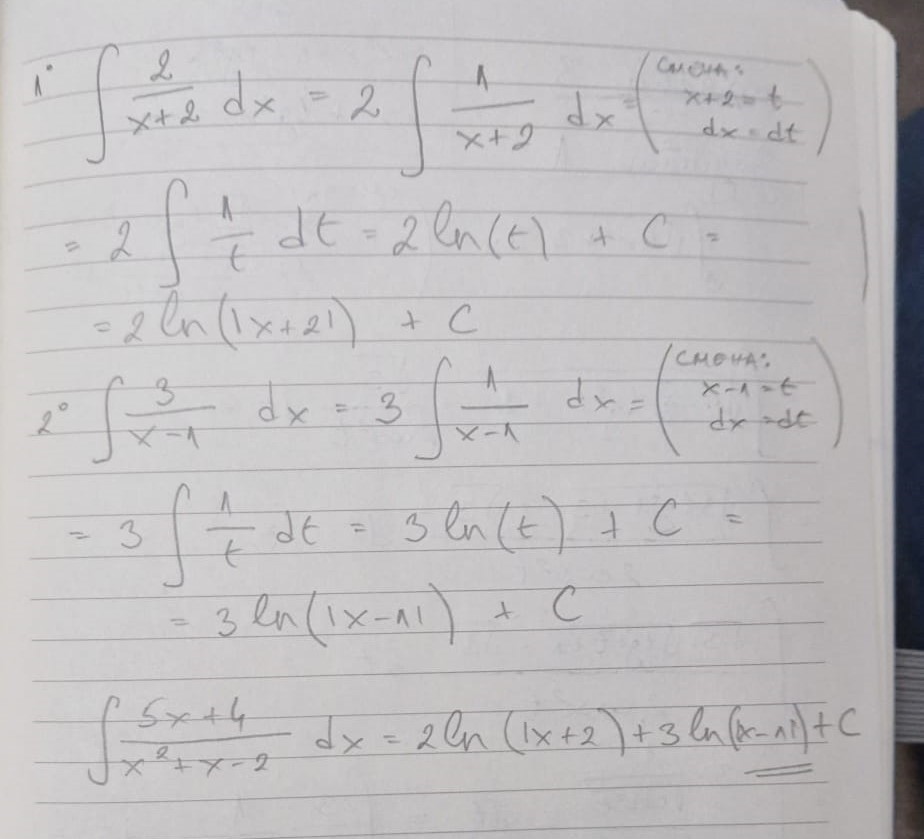 1° ∫ 2/(x+2) dx = 2 ∫ 1/(x+2) dx = (СМЕНА: x+2 = t dx = dt)
= 2 ∫ 1/t dt = 2 ln(t) + C =
= 2 ln(|x+2|) + C
2° ∫ 3/(x-1) dx = 3 ∫ 1/(x-1) dx = (СМЕНА: x-1 = t dx = dt)
= 3 ∫ 1/t dt = 3 ln(t) + C =
= 3 ln(|x-1|) + C
∫ (5x+4)/(x²+x-2) dx = 2 ln(|x+2) + 3 ln(|x-1|) + C